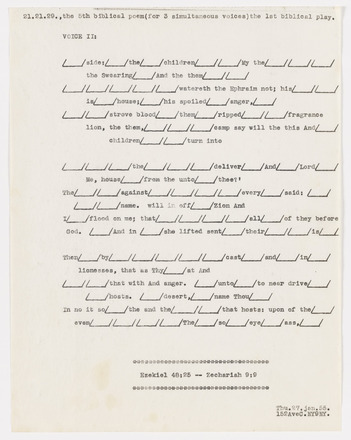 21.21.29.,the 5th biblical poem(for 3 simultaneous voices)the 1st biblical play.
VOICE II:
/____/side:/____/the/____/children/____//____/My the/____//____//____/
the Swearing/____/And the them/____//____/
/____//____//____//____//____//____/watereth the Ephraim not; his/____/
is/____/house;/____/his spoiled/____/anger,/____/
/____//____/strove blood/____/them/____/ripped/____//____/fragrance
lion, the them,/____//____//____//____/camp say will the this And/____/
children/____//____/turn into
/____//____//____/the/____//____//____/deliver/____/all/____/And/____/Lord/____/
Me, house/____/from the unto/____/thee?'
The/____//____/against/____//____//____//____//____/every/____/said: /____/
/____//____//____/name. will in off/____/Zion And
I/____/flood on me; that/____//____//____//____//____/all/____/of they before
God. /____/And in /____/she lifted sent/____/their/____//____/is/____/
Then/____/by/____//____//____//____//____//____/cast/____/and/____/in/____/
lionesses, that as Thy/____/at And
/____//____/that with And anger. /____/unto/____/to near drive/____/
/____/hosts. /____/desert,/____/name Thou/____/
In no it so/____/the and the/____//____/that hosts: upon of the/____/
even/____//____//____//____//____/The/____/so/____/eye/____/ass,/____/
Ezekiel 48:25 -- Zechariah 9:9
Thu.27.jan.55.
152AveC.NY9NY.